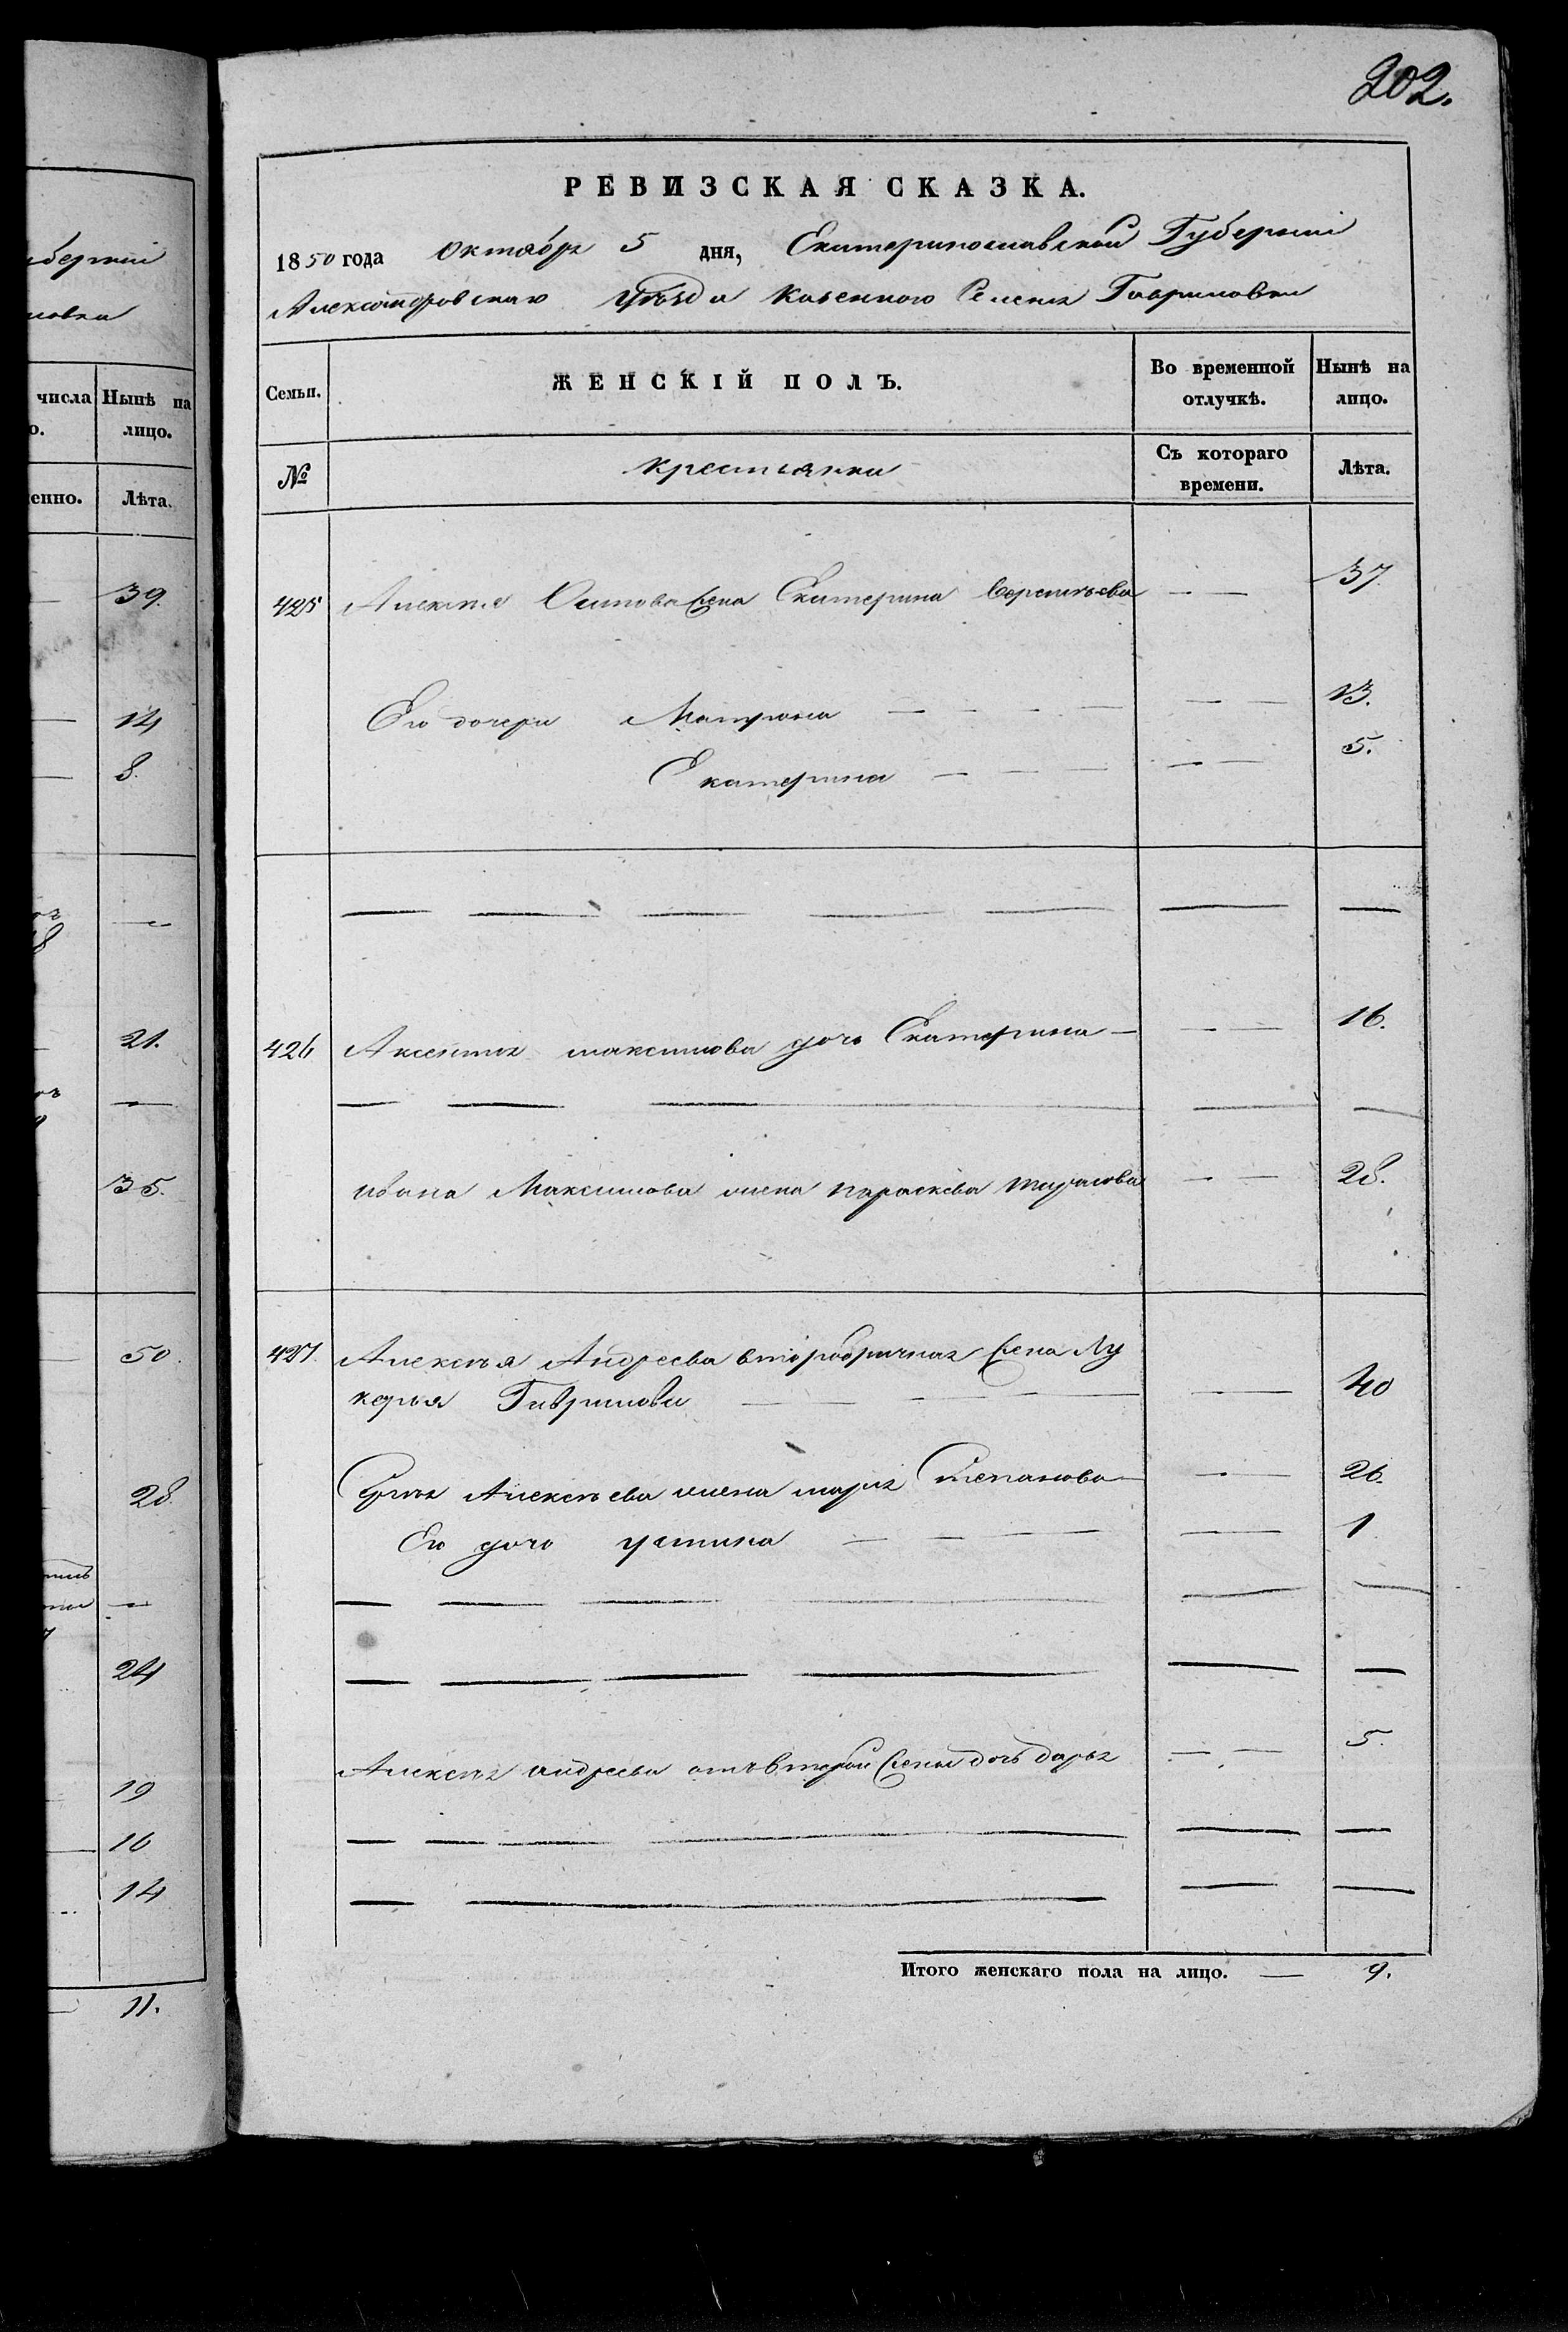 202.
РЕВИЗСКАЯ СКАЗКА.
1850 года октября 5 дня, Екатеринославской Губернии
Александровскаго уѣзда казеннаго селенія Гавриловки
Семьи.
ЖЕНСКІЙ ПОЛЪ.
Во временной отлучкѣ.
Нынѣ на лицо.
№
крестьянки
Съ котораго времени.
Лѣта.
425 Алексѣя Осипова жена Екатерина — — 37.
Его дочери Матрона — — — — — — 13.
Екатерина — — — — — 5.
— — — — — — —
426 Аксентія максимова дочь Екатерина — — — 16.
— — — — —
ивана Максимова жена параскева тарасова — — 28.
427. Алексѣя Андреева второбрачная жена Лу
керья Гаврилова — — — — — 40
Алексѣева жена марія Степанова — — 26.
Его дочь устина — — — — 1
— — — — — —
— — — — — —
Алексѣя андреева отъ второй жены дочь дарья — — 5.
— — — — — —
— — — —
Итого женскаго пола на лицо. — 9.
числа
Нынѣ на
лицо.
Лѣта.
39.
14
8.
—
21.
—
35.
50.
28.
—
24
19
16
14
11.